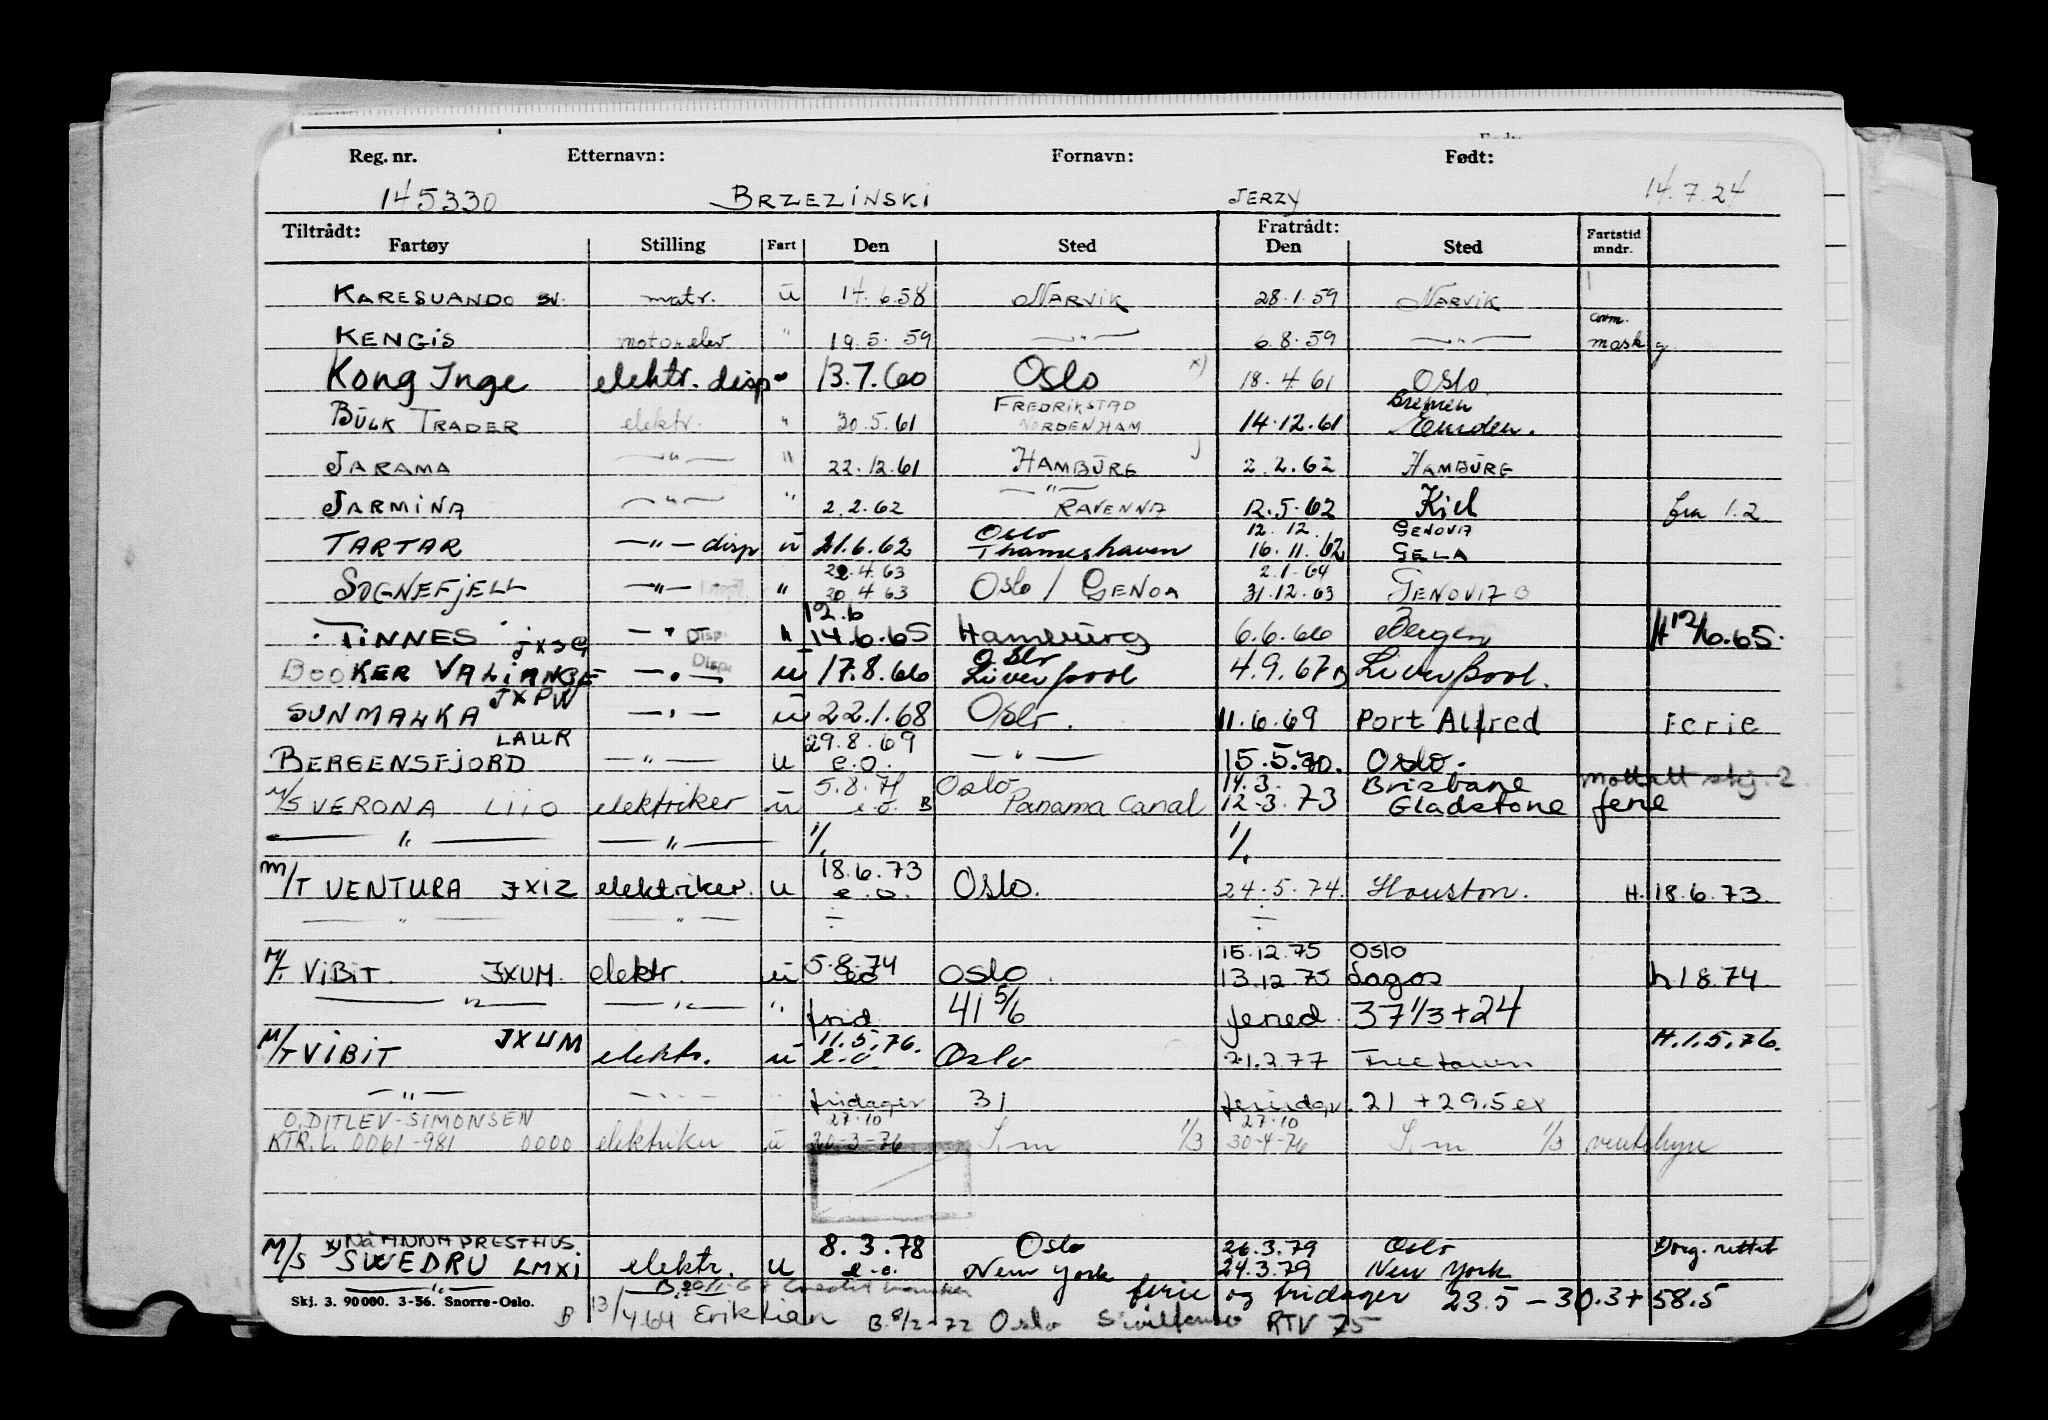 Reg. nr. Etternavn: Fornavn: Født:
145330 BRZEZINSKI JERZY 14.7.24
Tiltrådt: Fratrådt:
Fartøy Stilling Fart Den Sted Den Sted Fartstid mndr.
KARESUANDO sv. matr. u 14.6.58 NARVIK 28.1.59 NARVIK
KENGIS motorelev " 19.5.59 —"— 6.8.59 —"— mask
Kong Inge elektr. disp " 13.7.60 Oslo x) 18.4.61 Oslo
FREDRIKSTAD Bremen
BULK TRADER elektr. " 30.5.61 NORDENHAM 14.12.61 Emden.
JARAMA —"— " 22.12.61 HAMBURG 2.2.62 HAMBURG
—"—
JARMINA —"— " 2.2.62 RAVENNA 12.5.62 Kiel fra 1.2
Oslo 12.12. GENOVA
TARTAR —"— disp u 21.6.62 Thameshaven 16.11.62 GELA
22.4.63 2.1.64
SOGNEFJELL —"— " 20.4.63 Oslo / GENOA 31.12.63 GENOVA
12.6
TINNES JXSG —"— Disp " 14.6.65 Hamburg 6.6.66 Bergen H 12/6.65.
Oslo
BOOKER VALIANGE —"— Disp. u 17.8.66 Liverpool 4.9.67 Liverpool.
SUNMALKA JXPW —"— u 22.1.68 Oslo. 11.6.69 Port Alfred Ferie
LAUR 29.8.69
BERGENSFJORD —"— u e.o. —"— 15.5.70. Oslo.
5.8.71 Oslo 14.3. Brisbane mottatt skj. 2.
M/S VERONA LIIO elektriker u e.o. B Panama Canal 12-3.73 Gladstone ferie
—"— —"— 1/. 1/.
18.6.73
M/T VENTURA JXIZ elektriker. u e.o. Oslo. 24.5.74. Houston. H. 18.6.73.
—"— —"— ÷ ÷
5.8.74 15.12.75 Oslo
M/T VIBIT. JXUM. elektr. u eo Oslo. 13.12.75 Lagos h 1.8.74.
—"— —"— " frid 41 5/6 feried. 37 1/3 + 24
11.5.76. H. 1.5.76.
M/T VIBIT JXUM elektr. u e.o. Oslo 21.2.77 Freetown
—"— —"— " fridager 31 feriedgr. 21 + 29.5 ex
O. DITLEV-SIMONSEN 27.10 27.10
KTR. L. 0061-981 0000 elektriker u 20-3-76 1/3 30-4-76 1/3
Nå ANNA PRESTHUS 8.3.78 Oslo 26.3.79 Oslo
M/S x) SWEDRU LMXI elektr. u e.o. New York 24.3.79 New York
—"— ferie og fridager 23.5 – 30.3 + 58.5
Skj. 3. 90 000. 3-56. Snorre-Oslo.
B 13/4.64 B. 9/2-72 Oslo RTV 75